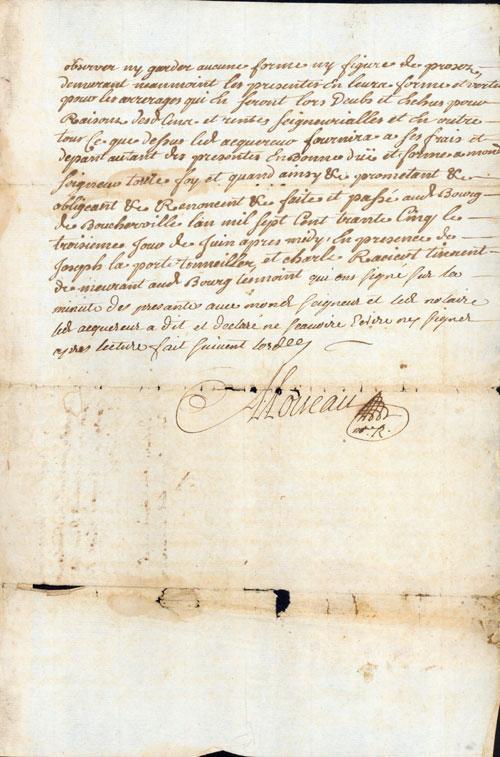 observer ny garder aucune forme ny figure de proses
demeurant neanmoint les presentes en leurs forme et vertu
pour les arrerages qui en seront lors deubs et echus pour
Raisons desd Cens et rentes seigneurialles et en outre
tout Ce que dessus led acquereur fournira a ses frais et
depant autant des presentes En bonne düe et forme a mond
Seigneur toute foy et quand ainsy & prometant &
obligeant & Renoncent & faite et passé aud Bourg
de Boucherville L'an mil sept Cent trante Cinq le
troisieme Jour de Juin apres midy En presence de
Joseph la porte tonneillier et charle Racicot tinent
de meurant aud Bourg temoint qui ons signé sur la
minute des presante avec mond seigneur et led notaire
led acquereur a dit et declaré ne scavoire Ecrire ney signer
apres lecture fait suivent lord
A Loiseau
no.re R.